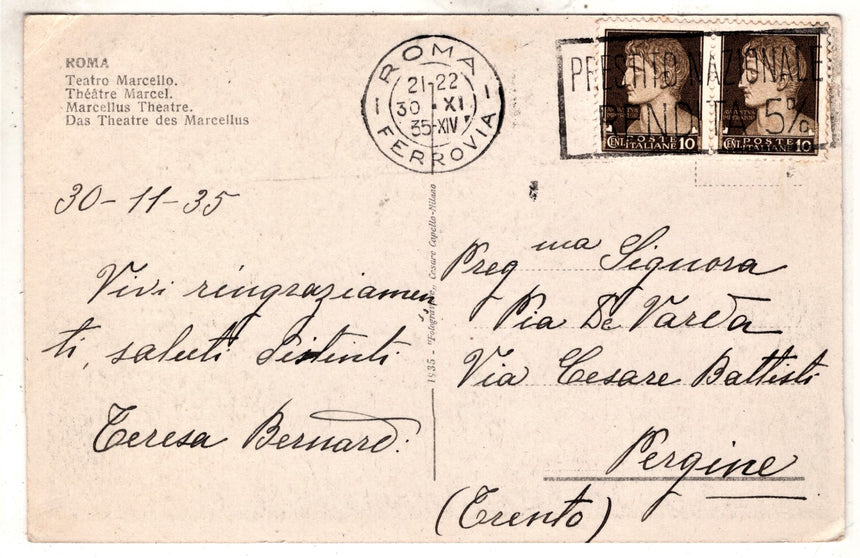 ROMA
Teatro Marcello.
Théâtre Marcel.
Marcellus Theatre.
Das Theatre des Marcellus
ROMA
21-22
30 · XI
35-XIV
FERROVIA
PRESTITO NAZIONALE
RENDITA 5%
POSTE
CENT. ITALIANE 10
POSTE
CENT. ITALIANE 10
30-11-35
Vivi ringraziamen
ti, saluti distinti
Teresa Bernard.
1935 - "Fotogravure" Cesare Capello-Milano
Preg ma Signora
Pia De Varda
Via Cesare Battisti
Pergine
(Trento)